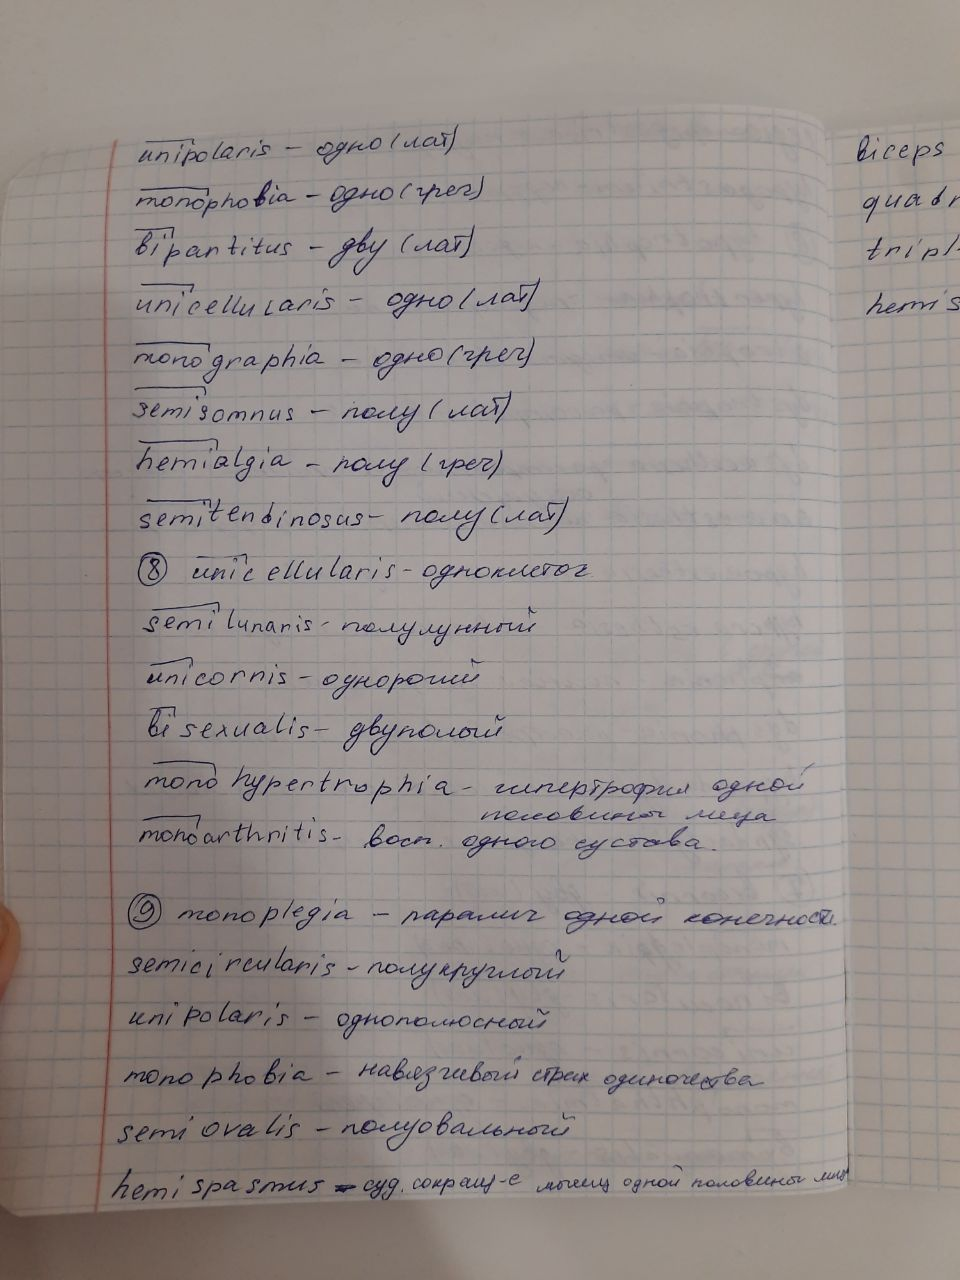 unipolaris - одно (лат)
monophobia - одно (греч)
bipartitus - дву (лат)
unicellularis - одно (лат)
monographia - одно (греч)
semisomnus - полу (лат)
hemialgia - полу (греч)
semitendinosus - полу (лат)
⑧ unicellularis - одноклеточ.
semilunaris - полулунный
unicornis - однорогий
bisexualis - двуполый
mono hypertrophia - гипертрофия одной
половины лица
monoarthritis - восп. одного сустава.
⑨ monoplegia - паралич одной конечности.
semicircularis - полукруглый
unipolaris - однополюсный
monophobia - навязчивый страх одиночества
semiovalis - полуовальный
hemispasmus - суд. сокращ-е мышц одной половины лица
biceps
quadr
tripl
hemis